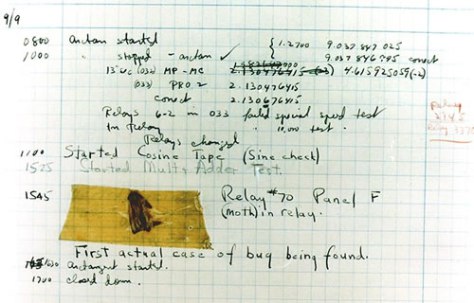 9/9
0800 antan started { 1.2700 9.037 847 025
1000 " stopped - antan ✓ 9.037 846 795 conect
13"uc (032) MP - MC 4.615925059(-2)
(033) PRO 2 2.130476415
conect 2.130676415
Relays 6-2 in 033 failed special speed test
In Relay " 10,000 test.
Relays changed
1100 Started Cosine Tape (Sine check)
1525 Started Mult+Adder Test.
1545 Relay #70 Panel F
(moth) in relay.
First actual case of bug being found.
antangent started.
1700 closed down.
Relay